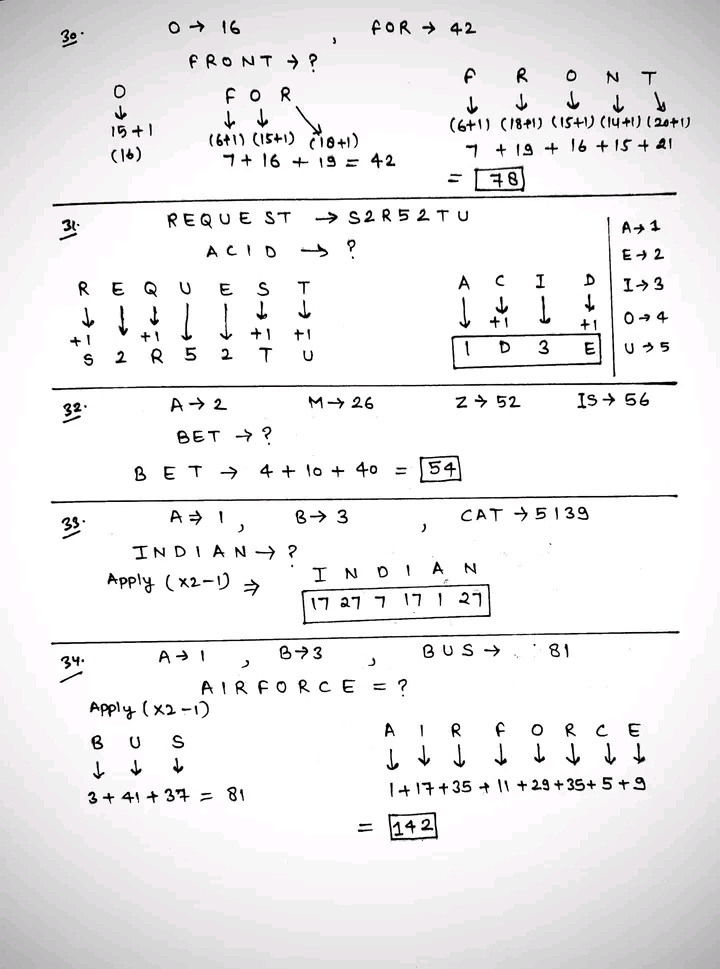 30. O → 16 , FOR → 42
FRONT → ?
O F O R F R O N T
↓ ↓ ↓ ↘ ↓ ↓ ↓ ↓ ↘
15+1 (6+1) (15+1) (18+1) (6+1) (18+1) (15+1) (14+1) (20+1)
(16) 7 + 16 + 19 = 42 7 + 19 + 16 + 15 + 21
= 78
31. REQUEST → S2R52TU
ACID → ?
R E Q U E S T
↓ ↓ ↓ ↓ ↓ ↓ ↓
+1 +1 +1 +1
S 2 R 5 2 T U
A C I D
↓ ↓ ↓ ↓
+1 +1
1 D 3 E
A → 1
E → 2
I → 3
O → 4
U → 5
32. A → 2 M → 26 Z → 52 IS → 56
BET → ?
B E T → 4 + 10 + 40 = 54
33. A ⇒ 1 , B → 3 , CAT → 5139
INDIAN → ?
Apply (×2-1) ⇒ I N D I A N
17 27 7 17 1 27
34. A → 1 , B → 3 , BUS → 81
AIRFORCE = ?
Apply (×2-1)
B U S
↓ ↓ ↓
3 + 41 + 37 = 81
A I R F O R C E
↓ ↓ ↓ ↓ ↓ ↓ ↓ ↓
1 + 17 + 35 + 11 + 29 + 35 + 5 + 9
= 142